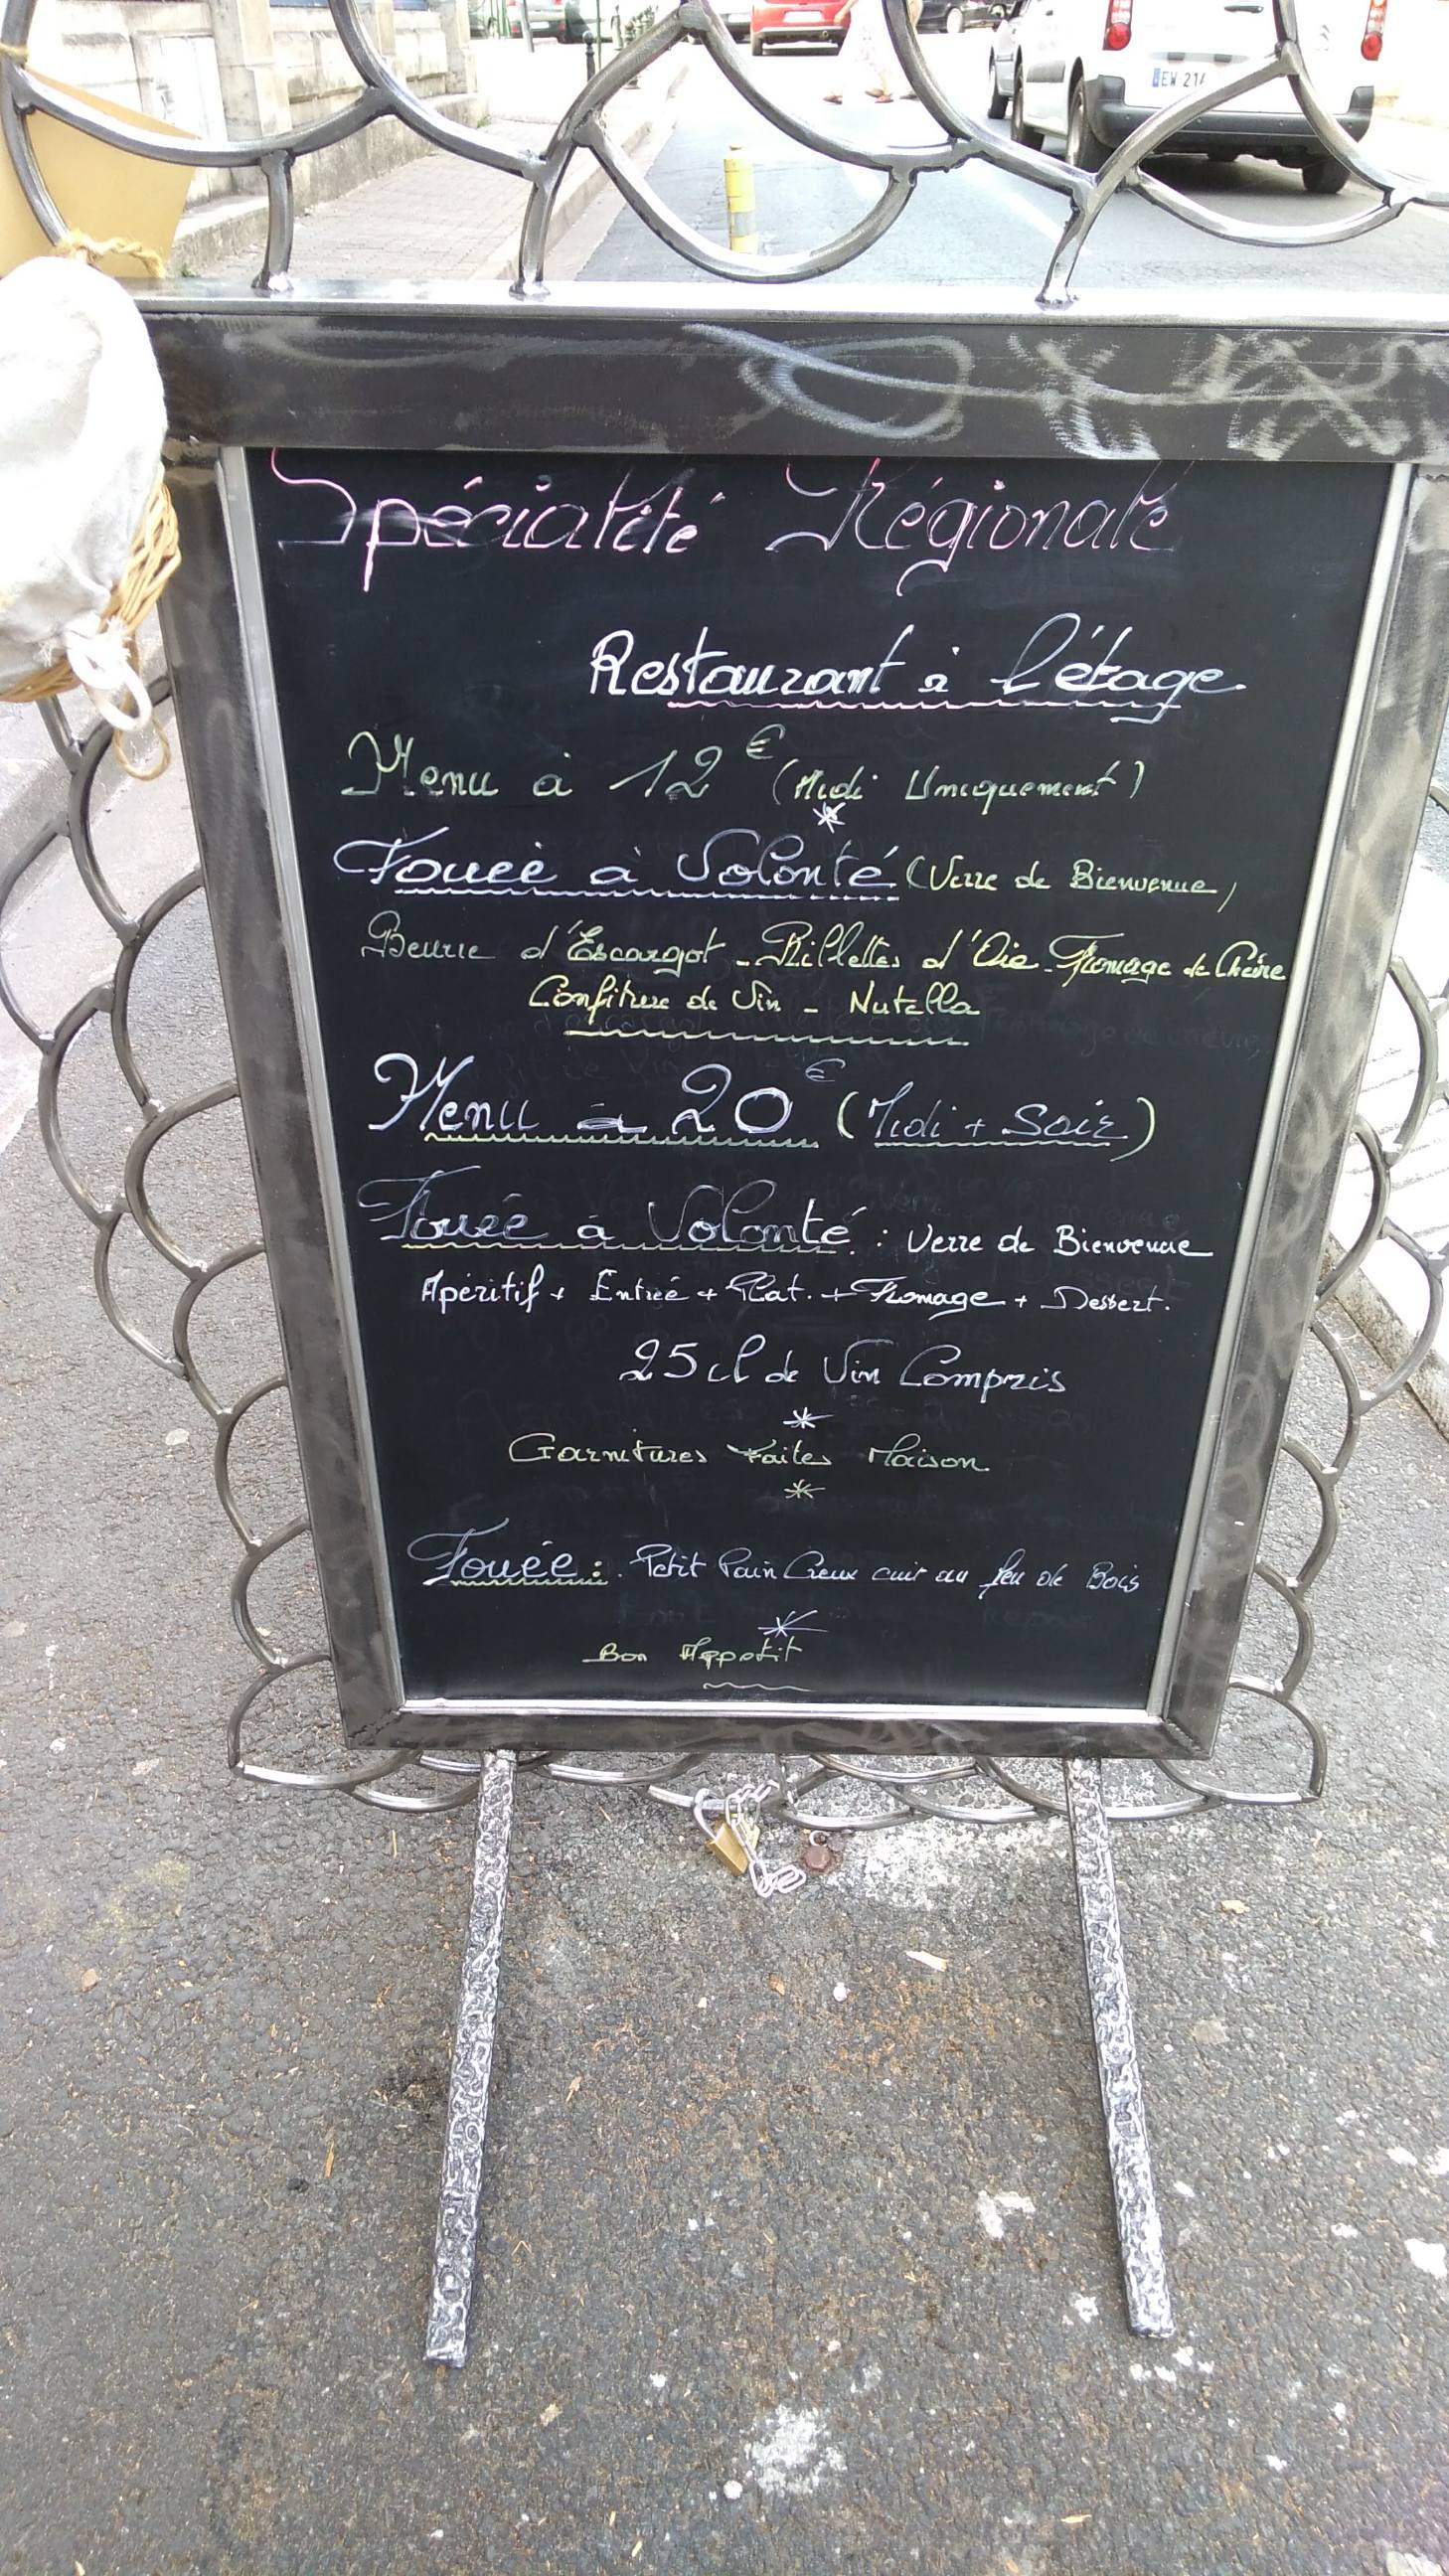 EW 214
Spécialité Régionale
Restaurant à l'étage
Menu à 12€ (Midi Uniquement)
Fouée à Volonté (Verre de Bienvenue,
Beurre d'Escargot - Rillettes d'Oie - Fromage de Chèvre
Confiture de Vin - Nutella
Menu à 20€ (Midi + Soir)
Fouée à Volonté : Verre de Bienvenue
Apéritif + Entrée + Plat. + Fromage + Dessert.
25 cl de Vin Compris
Garnitures Faites Maison
Fouée : Petit Pain Creux cuit au feu de Bois
Bon Appetit